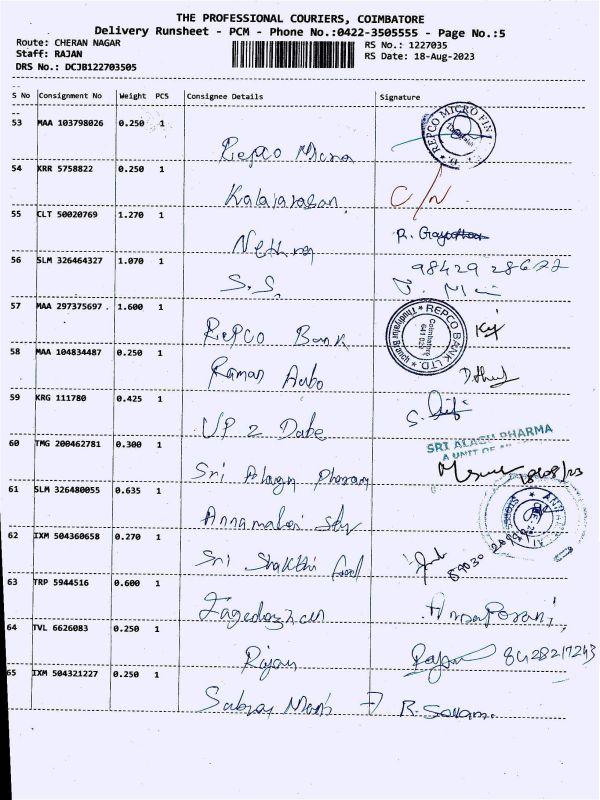 THE PROFESSIONAL COURIERS, COIMBATORE
Delivery Runsheet - PCM - Phone No.:0422-3505555 - Page No.:5
Route: CHERAN NAGAR
RS No.: 1227035
Staff: RAJAN
RS Date: 18-Aug-2023
DRS No.: DCJB122703505
S No Consignment No Weight PCS Consignee Details Signature
53 MAA 103798026 0.250 1
REPCO MICRO FIN
Repco Micro
54 KRR 5758822 0.250 1
Kalaiarasan C/N
55 CLT 50020769 1.270 1
Nethra R.
56 SLM 326464327 1.070 1
S.S.
57 MAA 297375697 . 1.600 1
REPCO BANK LTD.
Thudiyalur Branch
Coimbatore
641 029
Repco Bank
58 MAA 104834487 0.250 1
Raman Auto
59 KRG 111780 0.425 1
UP 2 Date S.
60 TMG 200462781 0.300 1
SRI ALAGU PHARMA
A UNIT OF
Sri Alagu Pharam 18/08/23
61 SLM 326480055 0.635 1
Annamalai
62 IXM 504360658 0.270 1
Sri Shakthi Food
63 TRP 5944516 0.600 1
64 TVL 6626083 0.250 1
Rajan Rajan 8428217243
65 IXM 504321227 0.250 1